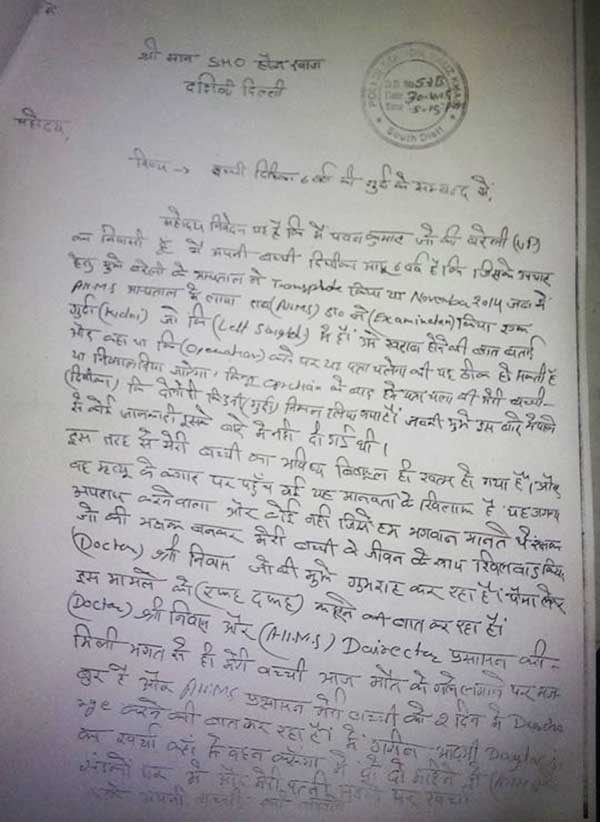 श्री मान SHO हौज खास
दक्षिणी दिल्ली
POLICE STATION HAUZ KHAS
D.D. No 57B
Date
Time
South Distt
महोदय,
विषय → बच्ची दिपीका 6 वर्ष की गुर्दे के सम्बन्ध में,
महोदय निवेदन यह है कि मैं पवन कुमार जो की बरेली (U.P)
का निवासी हूँ मैं अपनी बच्ची दिपीका 6 वर्ष है कि जिसके उपचार
हेतु मुझे बरेली के अस्पताल ने Transplate किया था November 2014 जब मैं
AIIMS अस्पताल में लाया तब (AIIMS) डा० ने (Examination) किया एक
गुर्दा (Kidni) जो कि (Left Saighd) में है। उसे खराब होने की बात बताई
और कहा था कि (Operation) करने पर या पता चलेगा की यह ठीक हो सकती है
या निकाल दिया जायेगा। किन्तु operation के बाद हमे पता चला की मेरी बच्ची-
(दिपीका) कि दोनो ही किडनी (गुर्दा) निकाल लिया गया है। जबकी मुझे इस बारे में पहले
से कोई जानकारी इसके बारे मे नही दी गई थी।
इस तरह से मेरी बच्ची का भविष्य बिलकुल ही खत्म हो गया है। और
वह मृत्यू के कगार पर पहुँच गई यह मानवता के खिलाफ है यह
अपराध करने वाला और कोई नही जिसे हम भगवान मानते थे
जो की भक्षक बनकर मेरी बच्ची के जीवन के साथ खिलवाड़ किया
(Doctor) श्री निवास जो की मुझे गुमराह कर रहा है। पैसा लेकर
इस मामले को (रफा दफा) करने की बात कर रहा है।
(Doctor) श्री निवास और (A.I.I.M.S) Dairector प्रसासन की-
मिली भगत से ही मेरी बच्ची आज मौत के गले लगाने पर मज-
बुर है और AIIMS प्रसासन मेरी बच्ची को 2 दिन में Discha-
rge करने की बात कर रहा है। मैं गरीब आदमी
का खर्चा कहाँ से वहन करूंगा मैं दो महिने से
मे और मेरी पत्नी पर खर्चा
अपनी बच्ची का